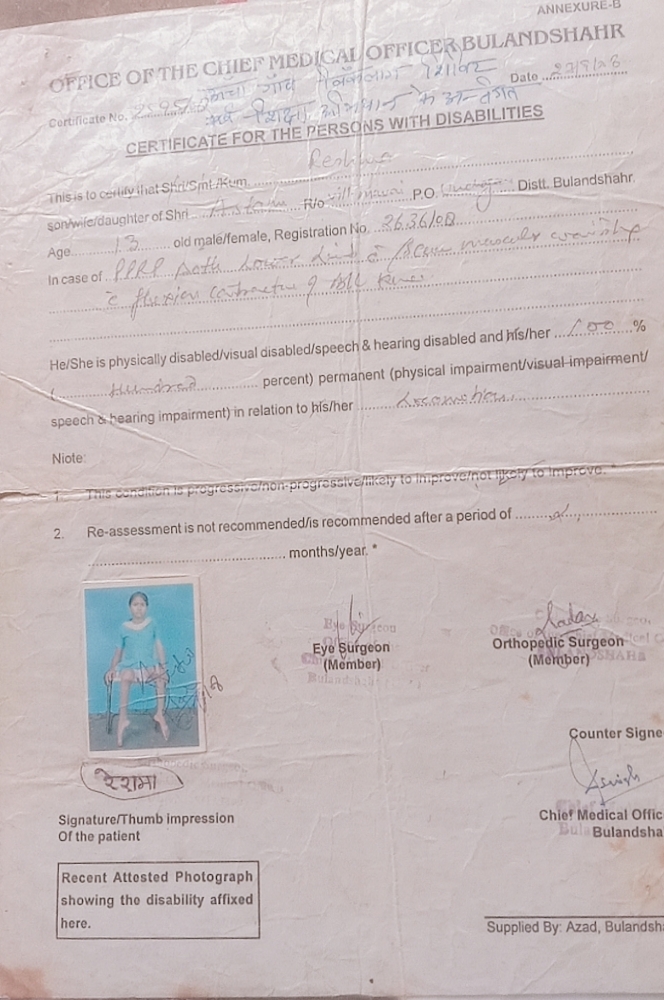 ANNEXURE-B
OFFICE OF THE CHIEF MEDICAL OFFICER BULANDSHAHR
ऊंचा गाँव विकलांग शिविर
Certificate No. Date
सर्व शिक्षा अभियान के अन्तर्गत
CERTIFICATE FOR THE PERSONS WITH DISABILITIES
This is to certify that Shri/Smt./Kum. Reshma
son/wife/daughter of Shri Aslam R/o Vill P.O. Distt. Bulandshahr.
Age 13 old male/female, Registration No. 2636/08
In case of PPRP Both Lower Limb
c flexion contracture of Knee
He/She is physically disabled/visual disabled/speech & hearing disabled and his/her 100 %
( Hundred percent) permanent (physical impairment/visual impairment/
speech & hearing impairment) in relation to his/her Locomotion
Niote:
1. This condition is progressive/non-progressive/likely to improve/not likely to improve. *
2. Re-assessment is not recommended/is recommended after a period of
months/year. *
Eye Surgeon
Eye Surgeon
(Member)
Orthopedic Surgeon
(Member)
Counter Signe
रेशमा
Signature/Thumb impression
Of the patient
Chief Medical Offic
Bulandsha
Recent Attested Photograph
showing the disability affixed
here.
Supplied By: Azad, Bulandsh